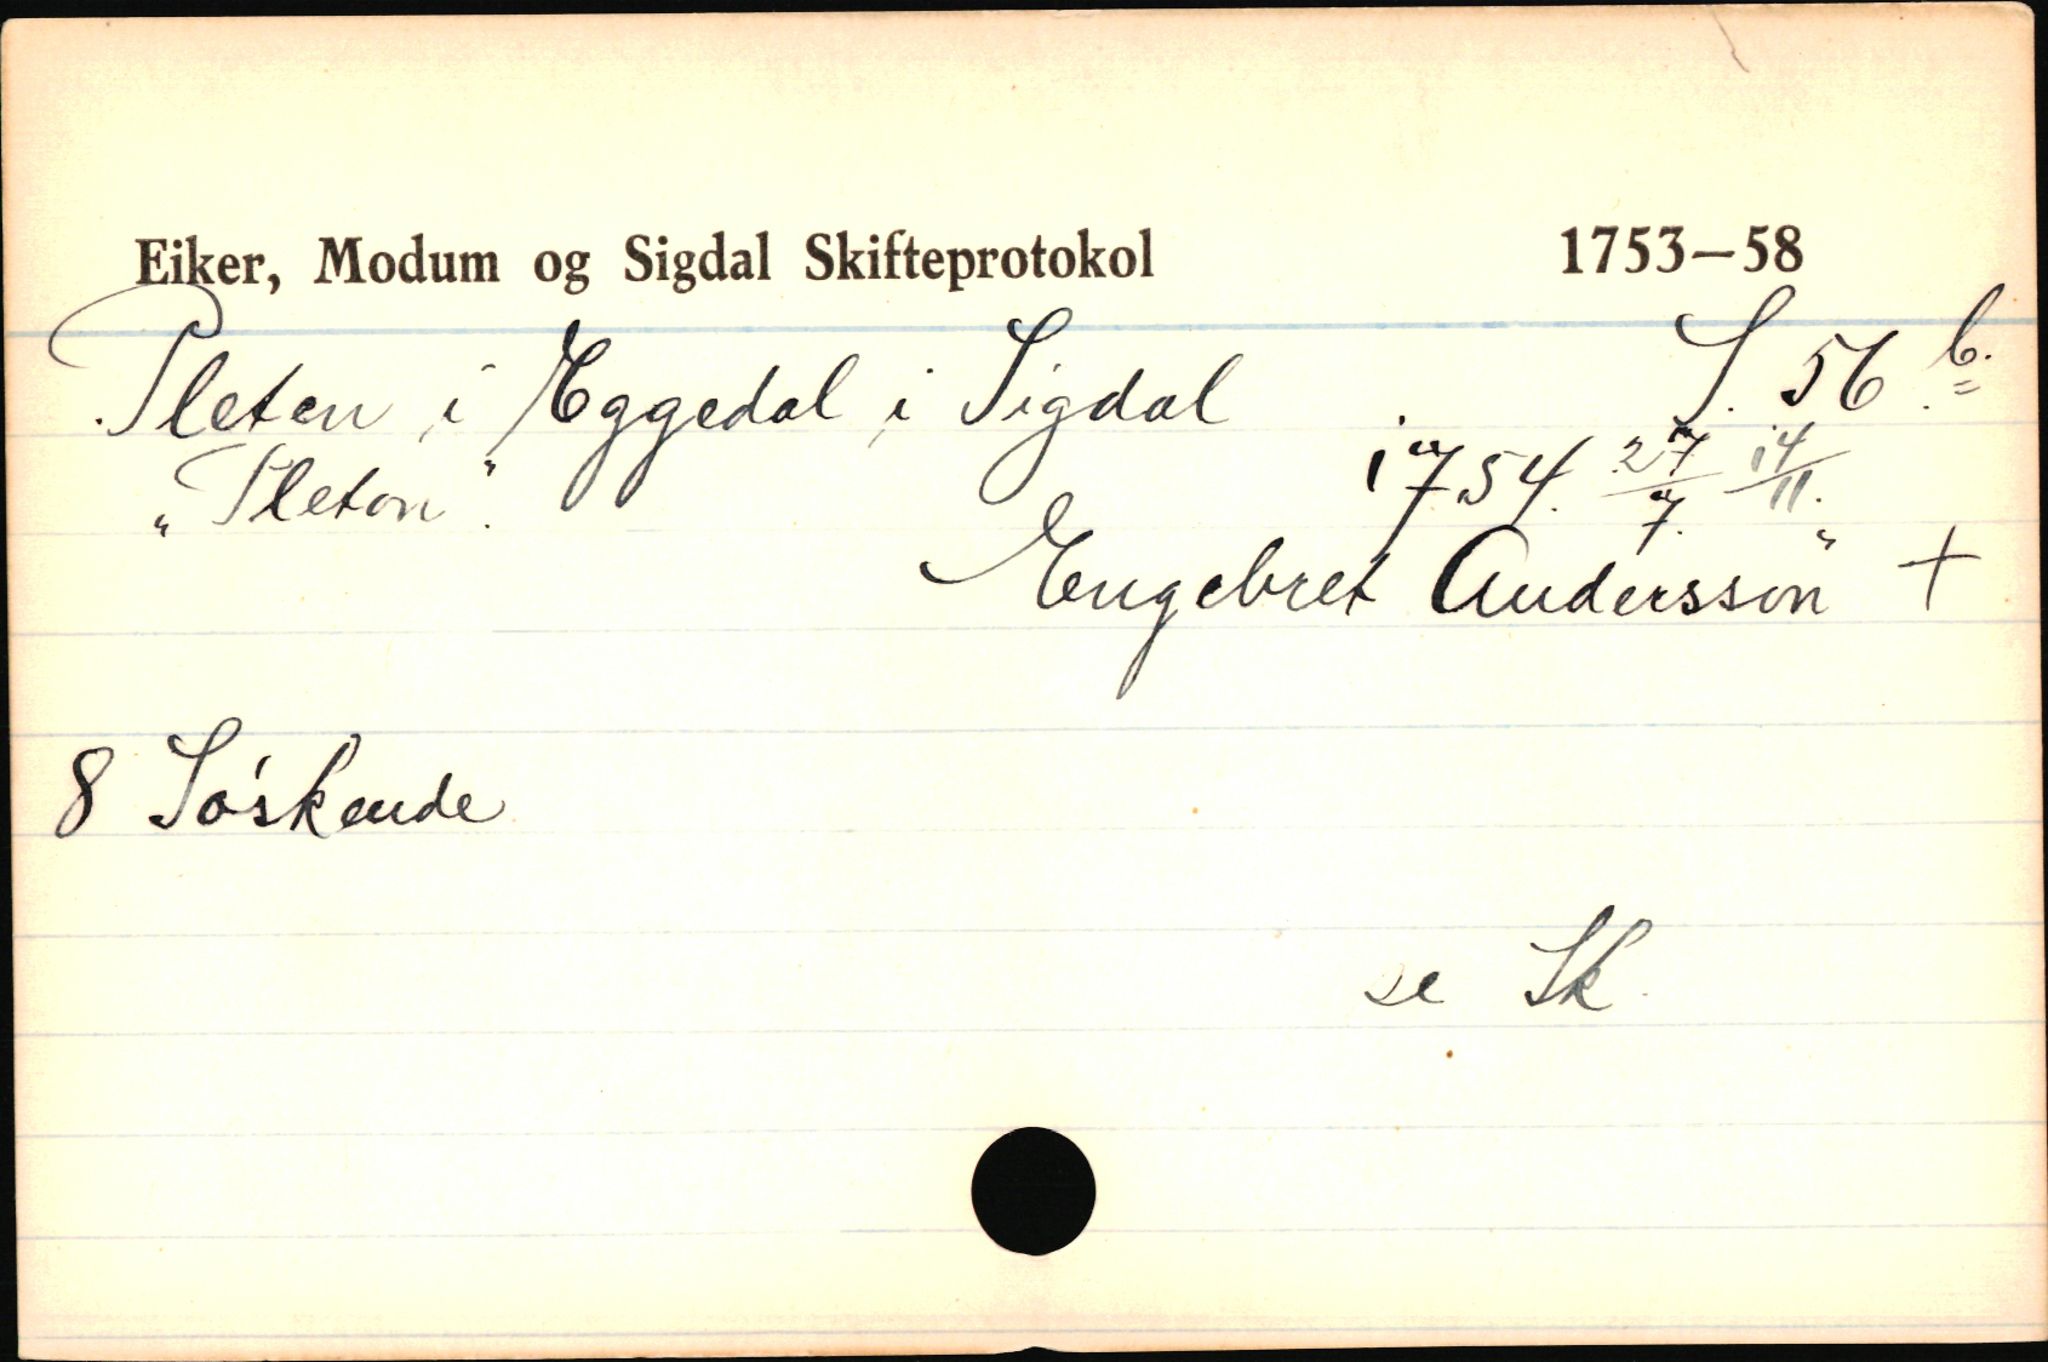 Eiker, Modum og Sigdal Skifteprotokol 1753—58
Pleten i Eggedal i Sigdal S. 56 b.
"Pleton". 1754. 27/7. 14/11.
Engebret Andersson" +
8 Søskende
se Sk.